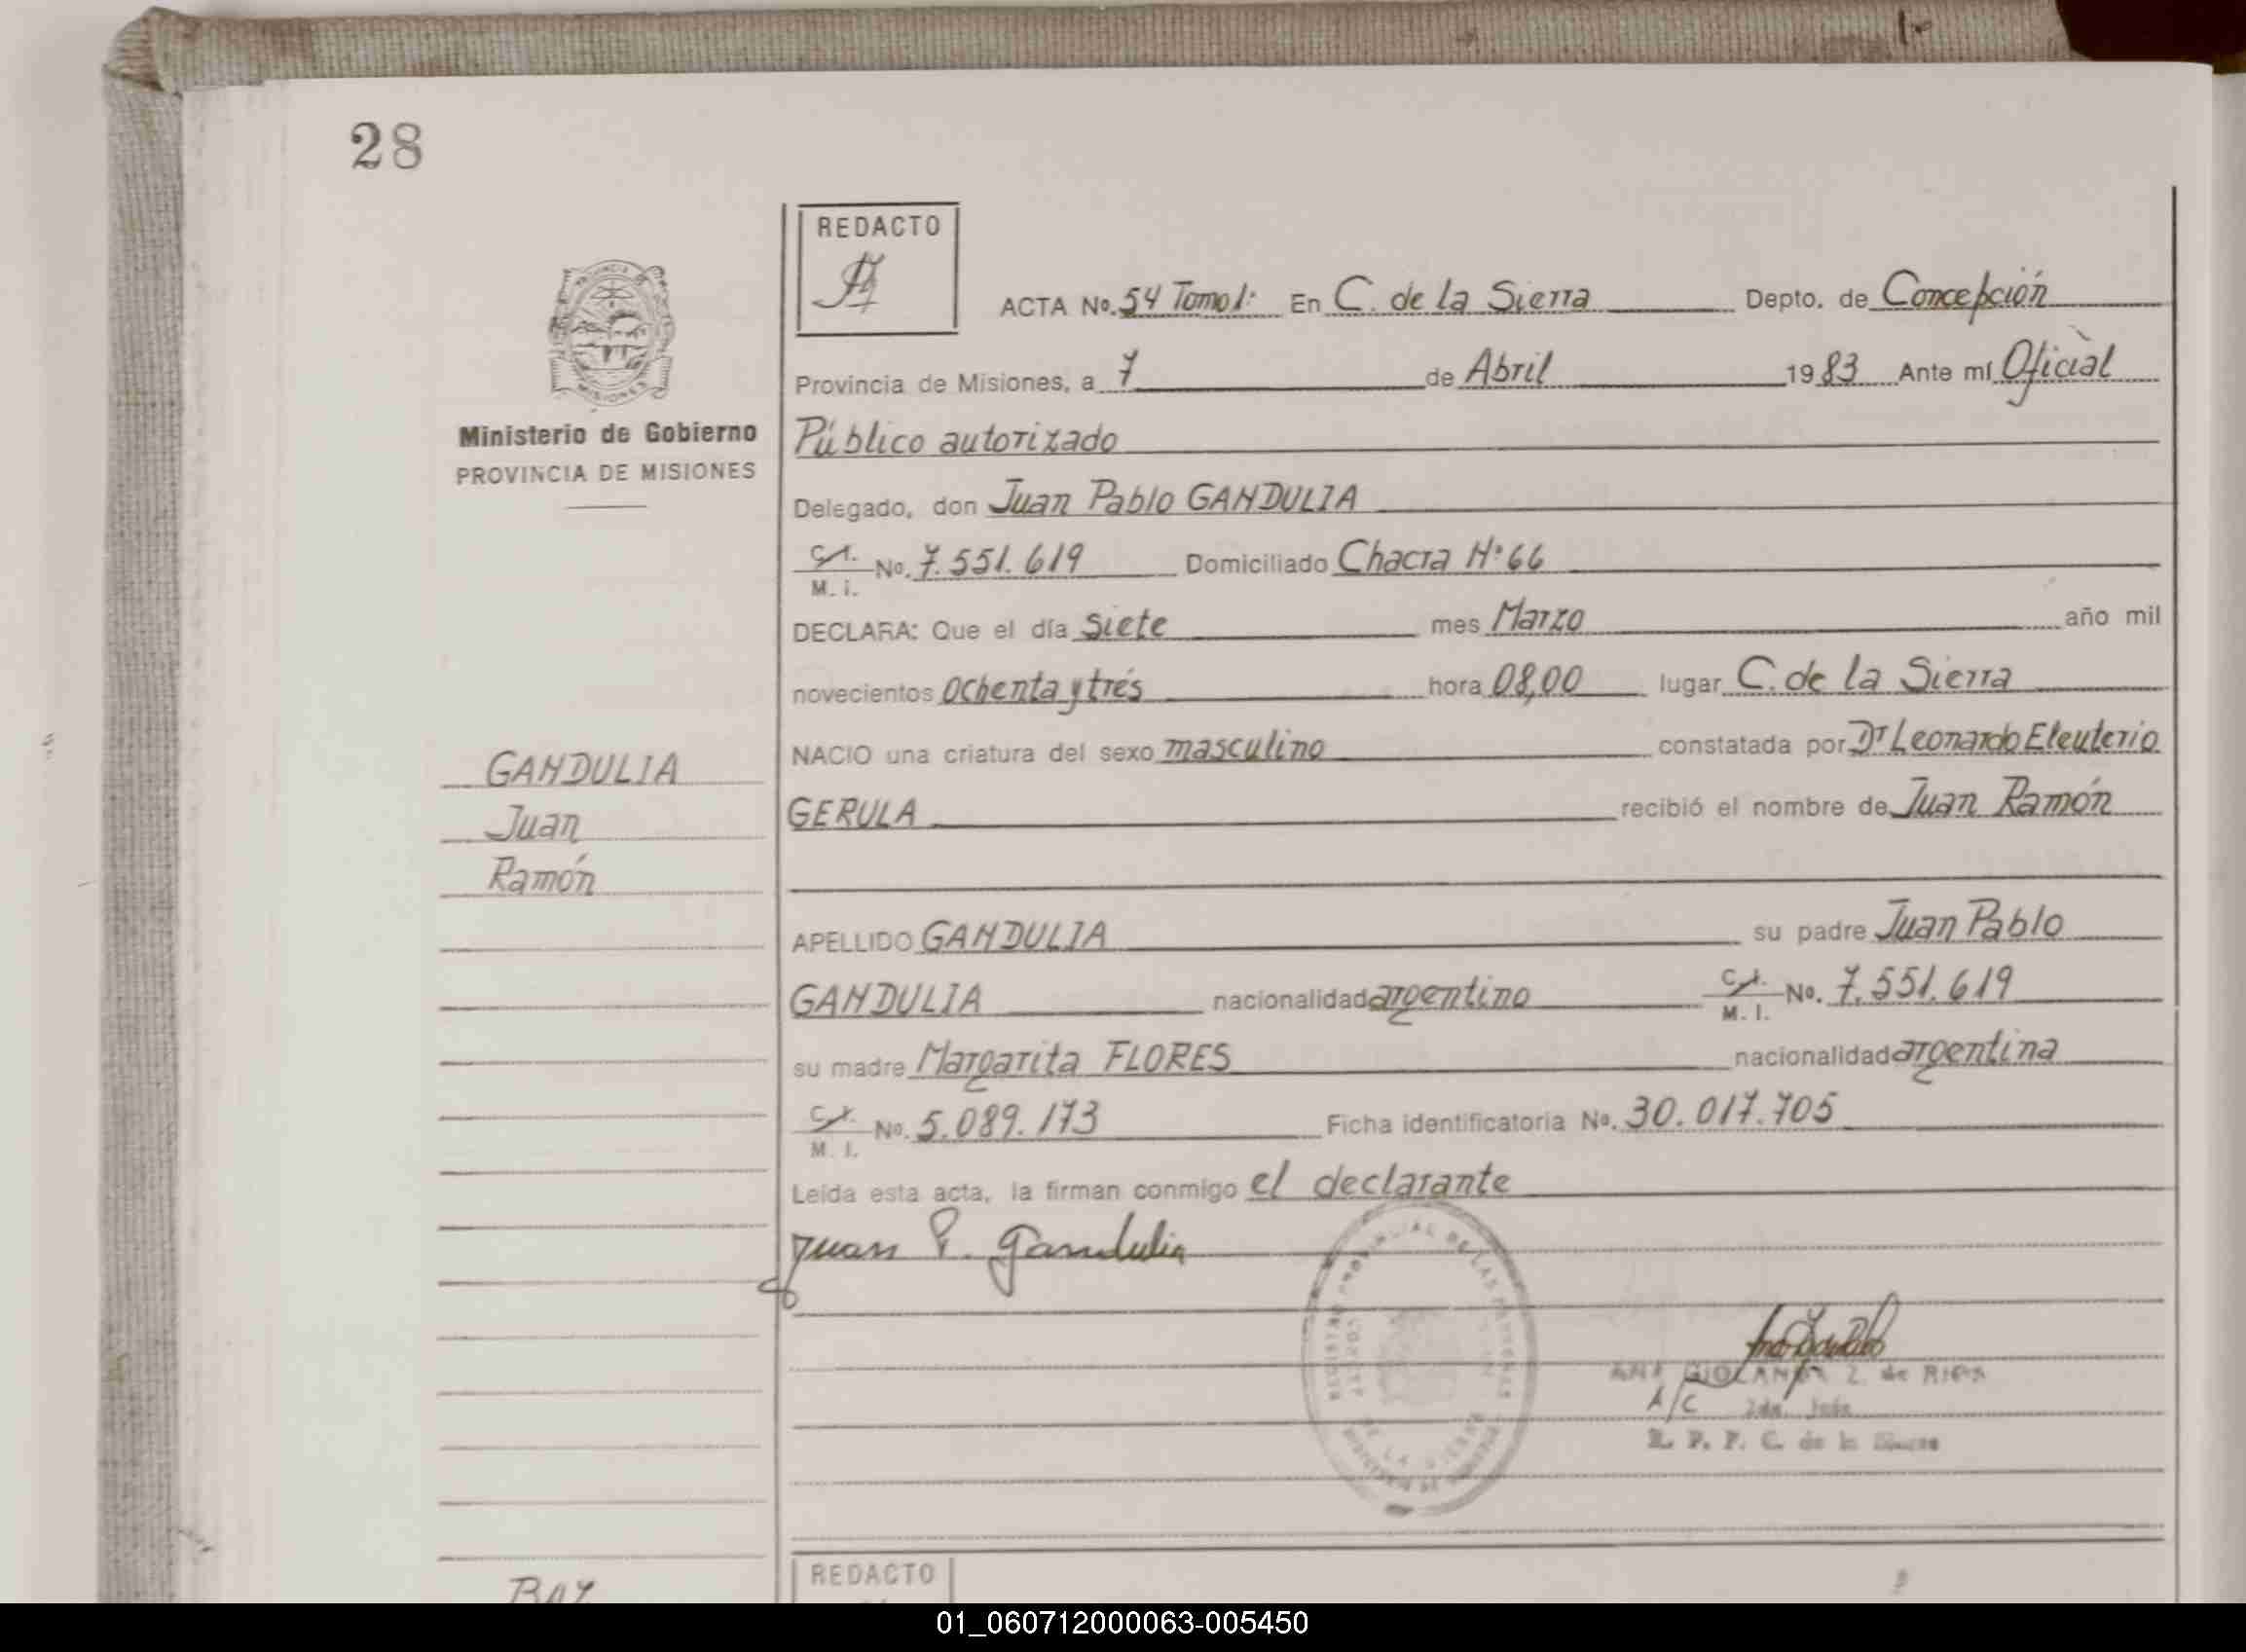 28
REDACTO
ACTA No. 54 Tomo 1: En C. de la Sierra Depto. de Concepción
Provincia de Misiones, a 7 de Abril 1983 Ante mí Oficial
Ministerio de Gobierno
PROVINCIA DE MISIONES
Público autorizado
Delegado, don Juan Pablo GANDULIA
C.I. M. I. No. 7.551.619 Domiciliado Chacra Nº 66
DECLARA: Que el día siete mes Marzo año mil
novecientos ochenta y tres hora 08,00 lugar C. de la Sierra
NACIO una criatura del sexo masculino constatada por Dr Leonardo Eleuterio
GERULA recibió el nombre de Juan Ramón
GANDULIA
Juan
Ramón
APELLIDO GANDULIA su padre Juan Pablo
GANDULIA nacionalidad argentino C.I. M. I. No. 7.551.619
su madre Margarita FLORES nacionalidad argentina
C.I. M. I. No. 5.089.173 Ficha identificatoria No. 30.017.705
Leída esta acta, la firman conmigo el declarante
Juan P. Gandulia
A/C
R. P. P. C. de la Sierra
REDACTO
01_060712000063-005450